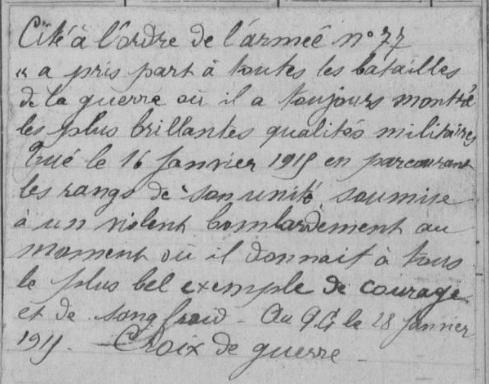 Cité à l'ordre de l'armée n° 77
" a pris part à toutes les batailles
de la guerre où il a toujours montré
les plus brillantes qualités militaires
Tué le 16 Janvier 1915 en parcourant
les rangs de son unité, soumise
à un violent bombardement au
moment où il donnait à tous
le plus bel exemple de courage
et de sang froid - Au Q.G le 28 Janvier
1915. Croix de guerre